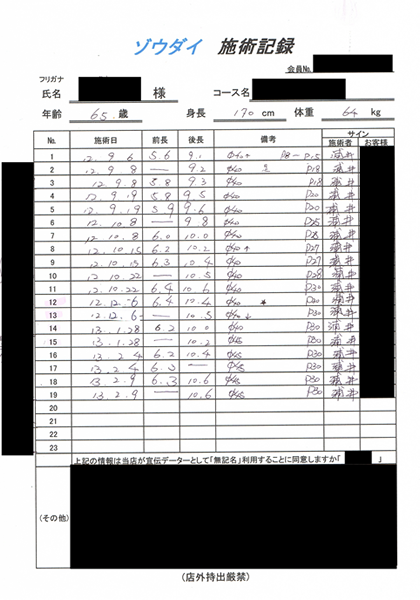 ゾウダイ 施術記録
会員No.
フリガナ
氏名 様 コース名
年齢 65 歳 身長 170 cm 体重 64 kg
No. 施術日 前長 後長 備考 サイン
施術者 お客様
1 12. 9. 6 5.6 9.1 φ40 P8-P15 浦井
2 12. 9. 8 — 9.2 φ40 P18 浦井
3 12. 9. 8 5.8 9.3 φ40 P18 浦井
4 12. 9. 19 5.8 9.5 φ40 P20 浦井
5 12. 9. 19 5.9 9.6 φ40 P20 浦井
6 12. 10. 8 — 9.8 φ40 P25 浦井
7 12. 10. 8 6.0 10.0 φ40 P25 浦井
8 12. 10. 15 6.2 10.2 φ40↑ P27 浦井
9 12. 10. 15 6.3 10.4 φ40 P27 浦井
10 12. 10. 22 — 10.5 φ40 P28 浦井
11 12. 10. 22 6.4 10.6 φ40 P30 浦井
12 12. 12. 6 6.4 10.4 φ40 * P20 浦井
13 12. 12. 6 — 10.5 φ40↓ P30 浦井
14 13. 1. 28 6.2 10.0 φ40 P30 浦井
15 13. 1. 28 — 10.2 φ45 P30 浦井
16 13. 2. 4 6.2 10.4 φ45 P30 浦井
17 13. 2. 4 6.3 — φ45 P30 浦井
18 13. 2. 9 6.3 10.6 φ45 P30 浦井
19 13. 2. 9 10.6 φ45 P30 浦井
20
21
22
23
上記の情報は当店が宣伝データーとして「無記名」利用することに同意しますか「 」
(その他)
(店外持出厳禁)